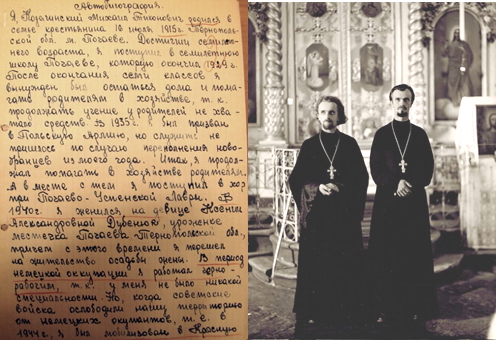 Автобиография.
Я, Михаил Тихонович родился в
семье крестьянина 16 июля 1915г. Тернополь-
ской обл. м. Почаеве. Достигши семилет-
него возраста, я поступил в семилетнюю
школу Почаеве, которую окончил 1929г.
После окончания семи классов я
вынужден был остаться дома и пома-
гать родителям в хозяйстве, т.к.
продолжать учение, у родителей не хва-
тало средств. В 1935г. я был призван
в Польскую Армию, но служить не
пришлось по случаю переполнения ново-
бранцев из моего года. Итак, я продол-
жал помагать в хозяйстве родителям.
А в месте с тем я поступил в хор
при Почаево-Успенской Лавры. В
1940г. я женился на девице Ксении
Александровной, урожене
местечка Почаева Тернопольской обл.,
причем с этого времени я перешел
на жительство осадбы жени. В период
немецкой оккупации я работал черно-
рабочим, т.к. у меня не было никакой
специальности. Но, когда советские
войска ослободили нашу территорию
от немецких окупантов, т.е. в
1944г. я был мобилизован в Красную